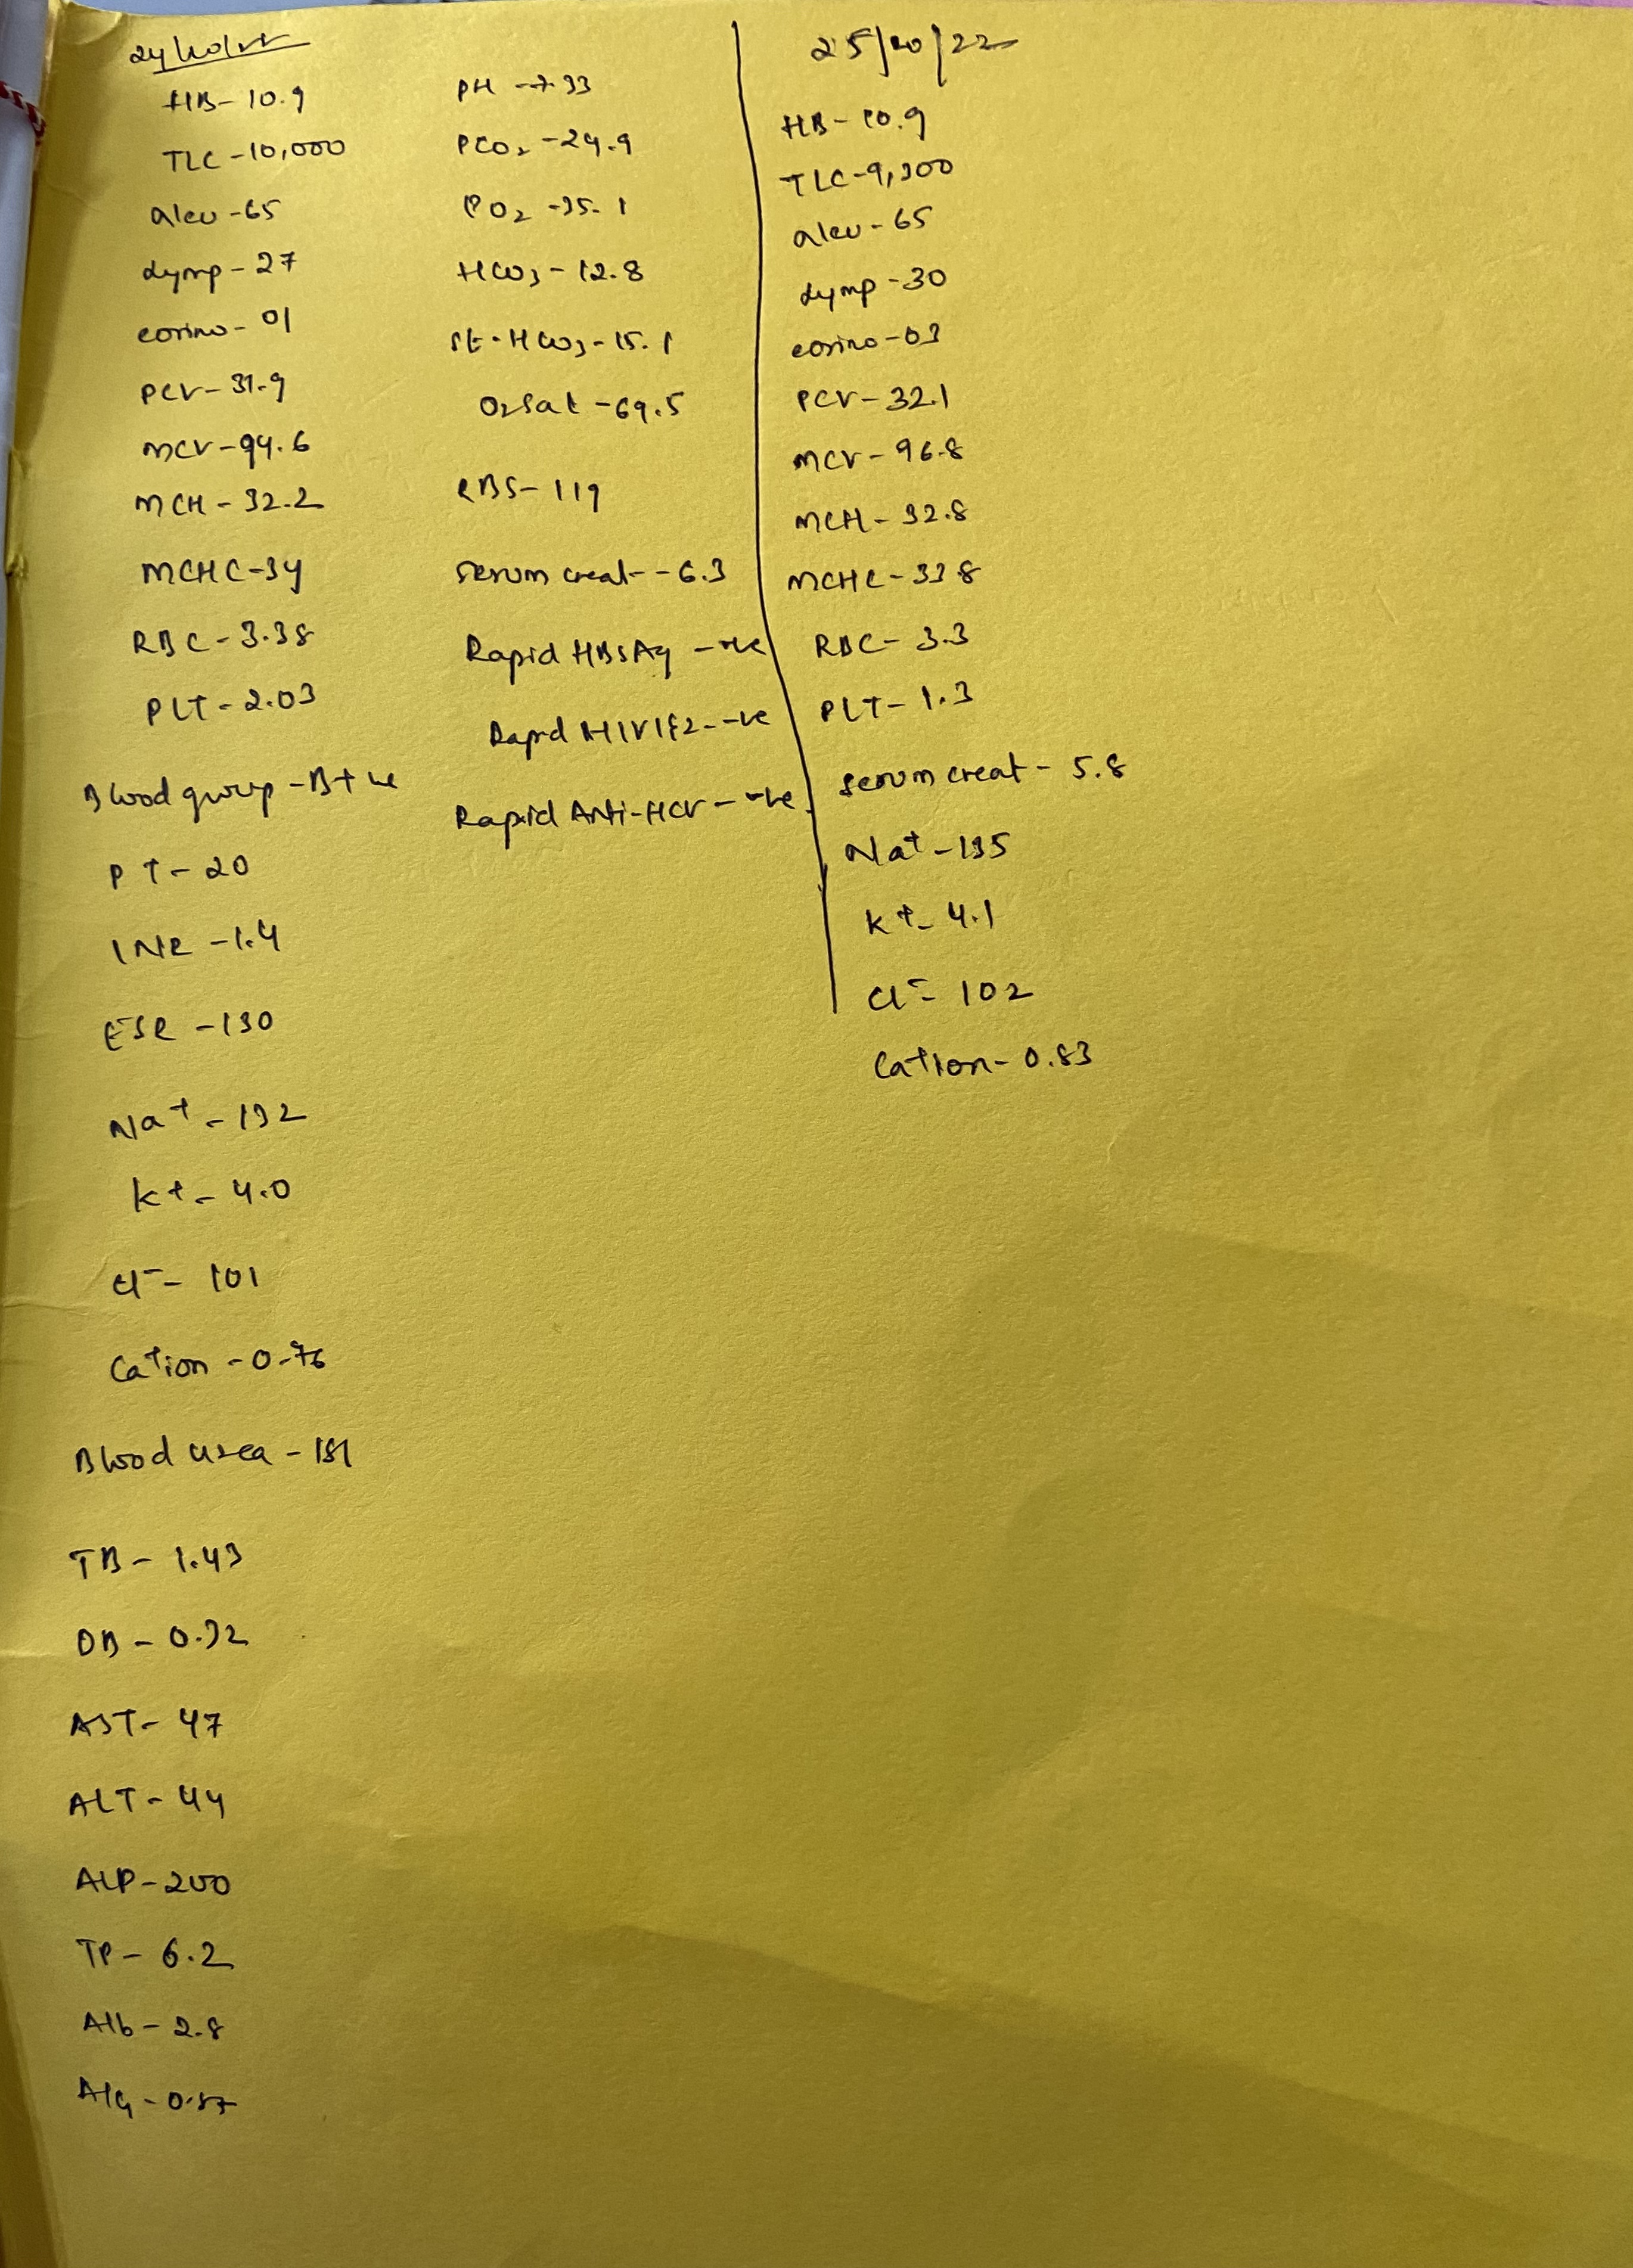 24/10/22
HB- 10.9
TLC -10,000
Lymp - 27
eosino - 01
PCV - 31.9
MCV - 94.6
MCH - 32.2
MCHC - 34
RBC - 3.38
PLT - 2.03
Blood group - B+ve
PT - 20
INR - 1.4
ESR - 130
Na+ - 132
K+ - 4.0
Cl- - 101
Ca+ion - 0.76
Blood urea - 151
TB - 1.43
DB - 0.32
AST - 47
ALT - 44
ALP - 200
TP - 6.2
Alb - 2.8
A/G - 0.87
PH - 7.33
PCO2 - 24.9
PO2 - 35.1
HCO3 - 12.8
St. HCO3 - 15.1
O2 Sat - 69.5
RBS - 119
Serum creat - 6.3
Rapid HBsAg - -ve
Rapid HIV 1&2 - -ve
Rapid Anti-HCV - -ve
25/10/22
HB - 10.9
TLC - 9,300
Lymp - 30
eosino - 03
PCV - 32.1
MCV - 96.8
MCH - 32.8
MCHC - 33.8
RBC - 3.3
PLT - 1.3
Serum creat - 5.8
Na+ - 135
K+ - 4.1
Cl- - 102
Ca+ion - 0.83